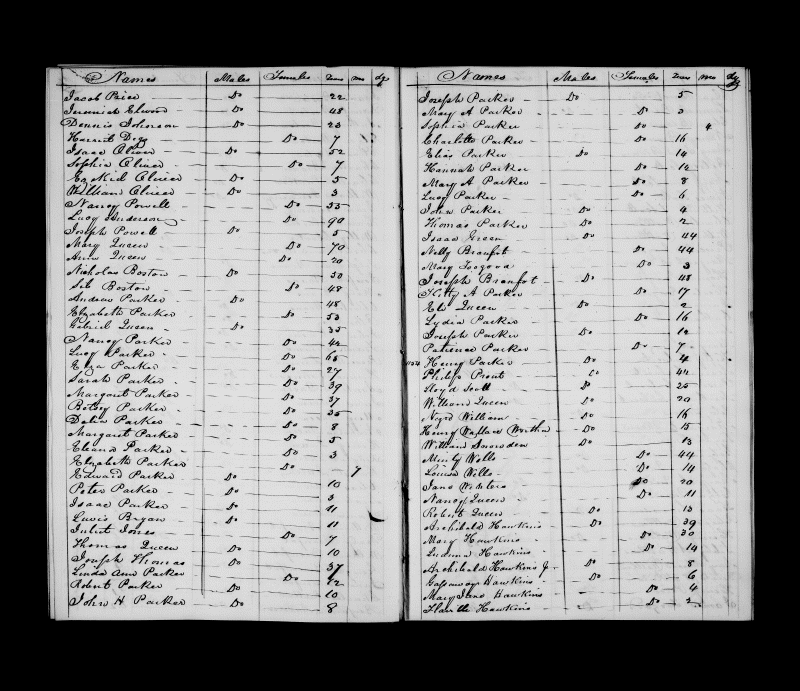 Names Males Females Years mo dys
Jacob Price Do 22
Jeremiah Elwood Do 48
Dennis Johnson Do 28
Harriet Do 7
Isaac Oliver Do 52
Sophia Oliver Do 7
Ezekiel Oliver Do 5
William Oliver Do 3
Nancy Powell Do 55
Lucy Anderson Do 90
Joseph Powell Do 5
Mary Queen Do 70
Anna Queen Do 20
Nicholas Boston Do 50
Boston Do 48
Andrew Parker Do 48
Elizabeth Parker Do 53
Gabriel Queen Do 35
Nancy Parker Do 42
Lucy Parker Do 65
Eliza Parker Do 27
Sarah Parker Do 39
Margaret Parker Do 37
Betsy Parker Do 35
Delia Parker Do 8
Margaret Parker Do 5
Eleanor Parker Do 3
Elizabeth Parker Do 7
Edward Parker Do 10
Peter Parker Do 3
Isaac Parker Do 11
Lewis Bryan Do 11
Juliet Jones Do 7
Thomas Queen Do 10
Joseph Thomas Do 37
Linda Ann Parker Do
Robert Parker Do 10
John H Parker Do 8
Names Males Females Years mo dys
Joseph Parker Do 5
Mary A Parker Do 3
Sophia Parker Do 4
Charlotte Parker Do 16
Elias Parker Do 14
Hannah Parker Do 12
Mary A Parker Do 8
Lucy Parker Do 6
John Parker Do 4
Thomas Parker Do 2
Isaac Green Do 44
Nelly Branfot Do 44
Mary Do 3
Joseph Branfort Do 48
Kitty A Parker Do 17
Eli Queen Do 2
Lydia Parker Do 16
Joseph Parker Do 12
Patience Parker Do 7
Henry Parker Do 4
Philip Prout Do 42
Lloyd Scott Do 25
William Queen Do 20
William Do 16
Henry Wallace Do 15
William Snowden Do 13
Minty Wells Do 44
Louisa Wells Do 14
Jane Winters Do 20
Nancy Queen Do 11
Robert Queen Do 13
Archibald Hawkins Do 39
Mary Hawkins Do 30
Hawkins Do 14
Archibald Hawkins Jr Do 8
Gassaway Hawkins Do 6
Mary Jane Hawkins Do 4
Hawkins Do 2